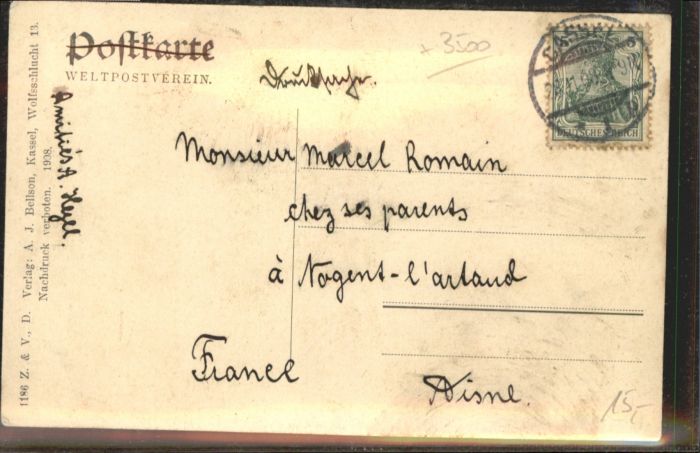 Postkarte
WELTPOSTVEREIN.
+ 3500
Drucksache.
DEUTSCHES REICH
Monsieur Marcel Romain
chez ses parents
à Nogent-l'artaud
France
Aisne.
15,-
Amitiés A. Heyel.
1186 Z. & V., D. Verlag: A. J. Bellson, Kassel, Wolfsschlucht 13.
Nachdruck verboten. 1908.